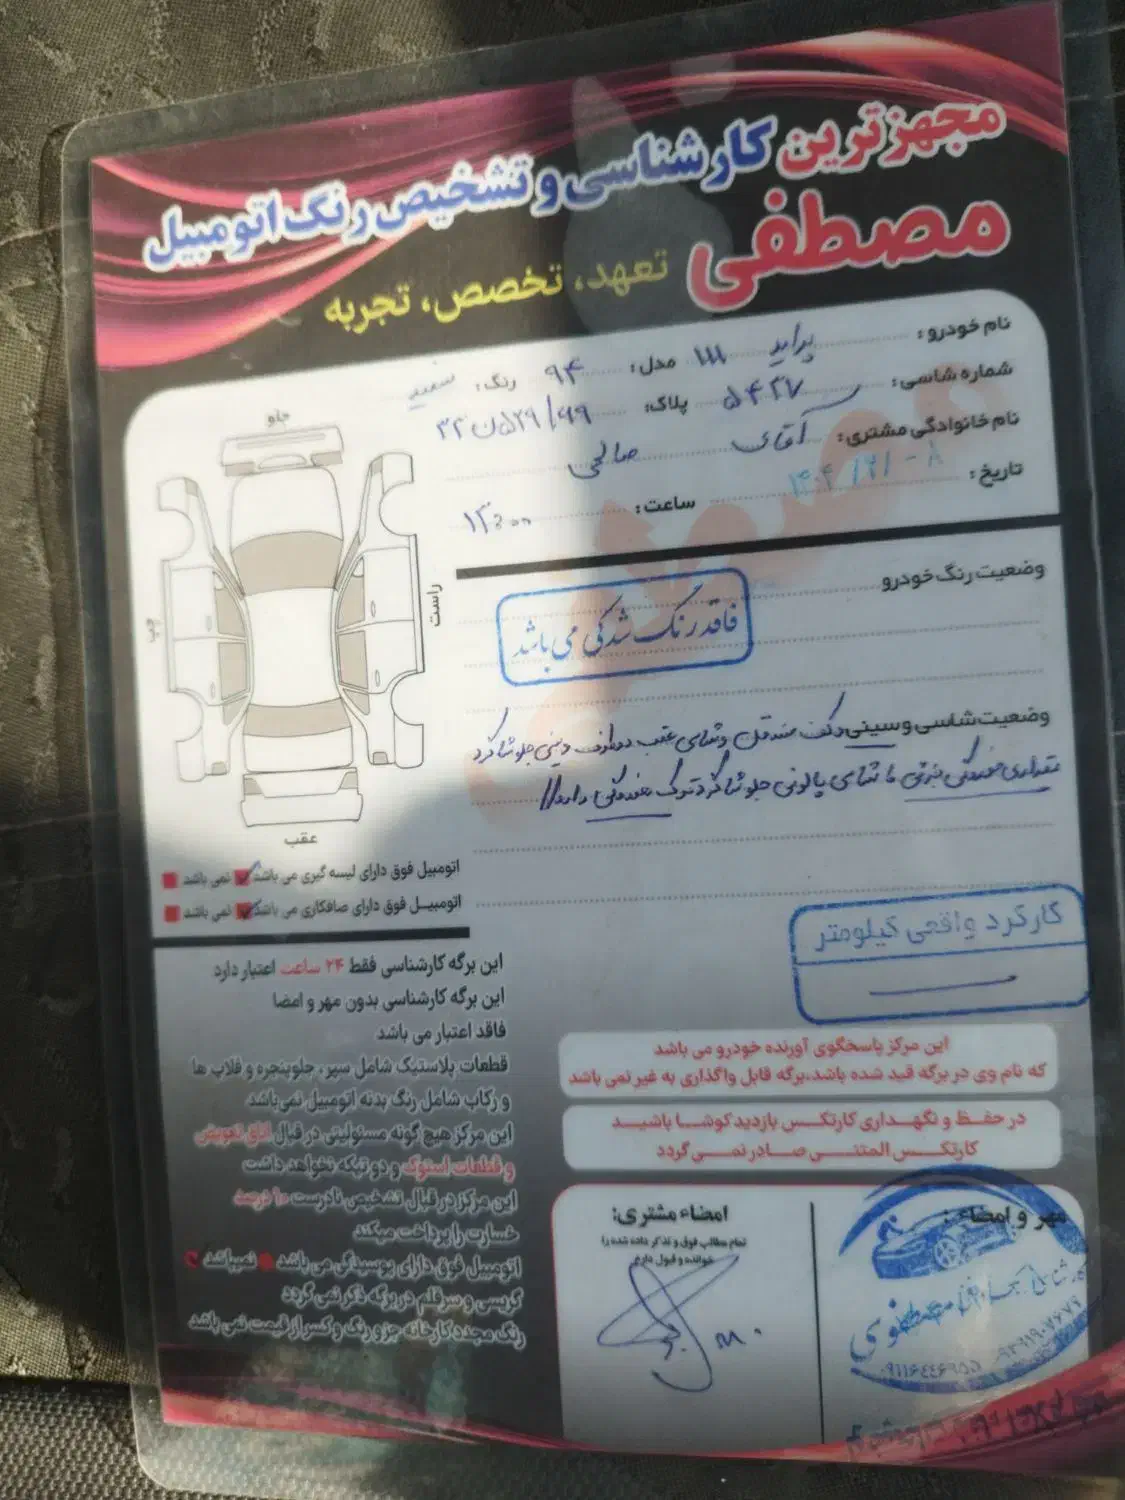 مجهزترین کارشناسی و تشخیص رنگ اتومبیل
مصطفی
تعهد، تخصص، تجربه
نام خودرو: پراید 111 مدل: 94 رنگ: سفید
شماره شاسی: 5427 پلاک:
نام خانوادگی مشتری: آقای صالحی
تاریخ: ساعت: 13:00
جلو
چپ
راست
عقب
وضعیت رنگ خودرو
فاقد رنگ شدگی می باشد
وضعیت شاسی و سینی
کارکرد واقعی کیلومتر
اتومبیل فوق دارای لیسه گیری می باشد نمی باشد
اتومبیل فوق دارای صافکاری می باشد نمی باشد
این برگه کارشناسی فقط ۲۴ ساعت اعتبار دارد
این برگه کارشناسی بدون مهر و امضا
فاقد اعتبار می باشد
قطعات پلاستیک شامل سپر، جلوپنجره و قلاب ها
و رکاب شامل رنگ بدنه اتومبیل نمی باشد
این مرکز هیچ گونه مسئولیتی در قبال اتاق تعویض
و قطعات استوک و دو تیکه نخواهد داشت
این مرکز در قبال تشخیص نادرست ۱۰ درصد
خسارت را پرداخت میکند
اتومبیل فوق دارای پوسیدگی می باشد نمیباشد
گریسی و سرقلم در برگه ذکر نمی گردد
رنگ مجدد کارخانه جزو رنگ و کسر از قیمت نمی باشد
این مرکز پاسخگوی آورنده خودرو می باشد
که نام وی در برگه قید شده باشد،برگه قابل واگذاری به غیر نمی باشد
در حفظ و نگهداری کارتکس بازدید کوشا باشید
کارتکس المثنی صادر نمی گردد
امضاء مشتری:
تمام مطالب فوق و تذکر داده شده را
خوانده و قبول دارم
مهر و امضاء: